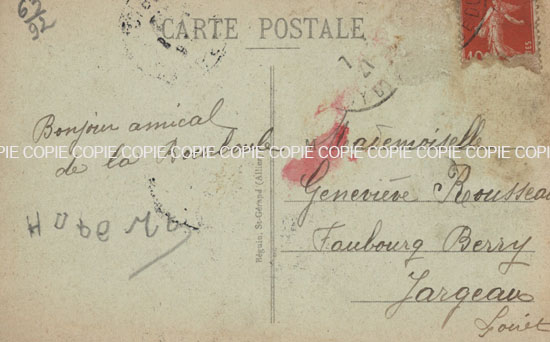 62
92
CARTE POSTALE
Bonjour amical
de la
COPIE COPIE COPIE COPIE COPIE COPIE COPIE COPIE COPIE COPIE COPIE COPIE
Mademoiselle
Geneviève Rousseau
Faubourg Berry
Jargeau
Loiret
Béguin, St-Gérand (Allier)